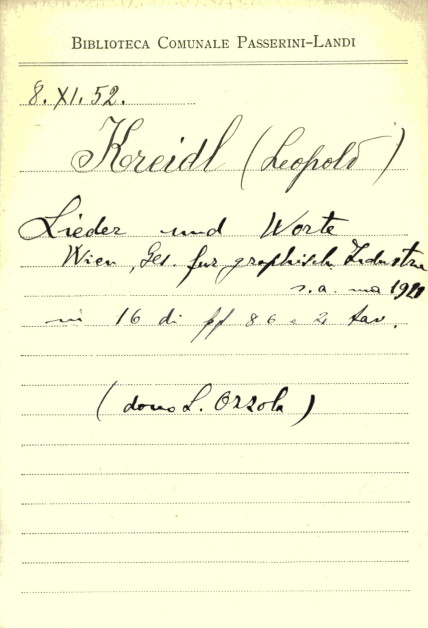 BIBLIOTECA COMUNALE PASSERINI-LANDI
8. XI. 52.
Kreidl (Leopold)
Lieder und Worte
Wien, Ges. fur graphisch. Industrie
s. a. ma 1921
in 16 di pp 86 e 2 tav.
(dono L. Ozzola)